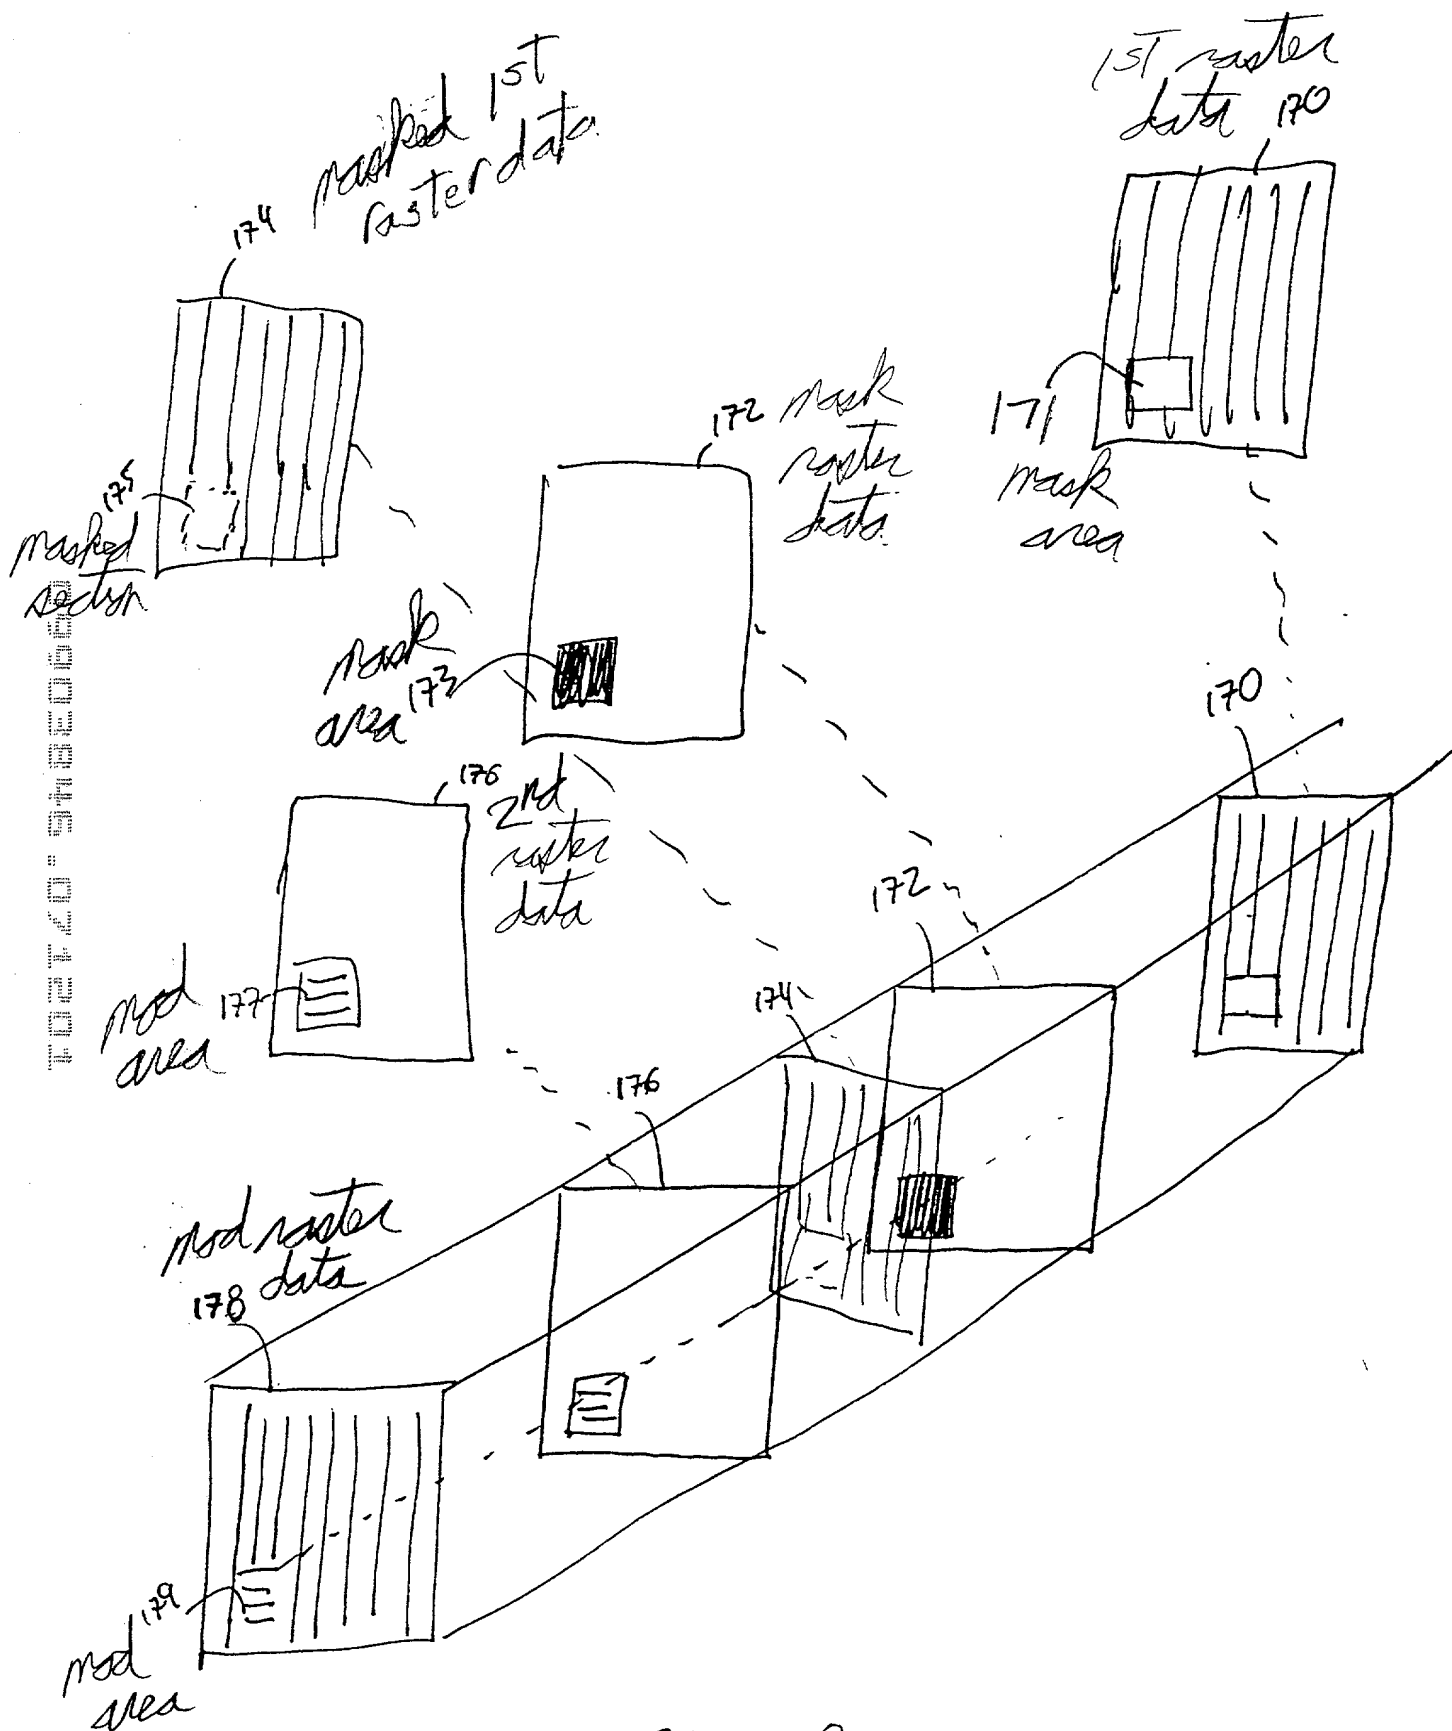 masked 1st
raster data
174
1st raster
data 170
175
masked
section
172
mask
raster
data
171
mask
area
mask
area 173
176
2nd
raster
data
mod
area
177
170
172
174
176
mod raster
data
178
179
mod
area
09903845.071201